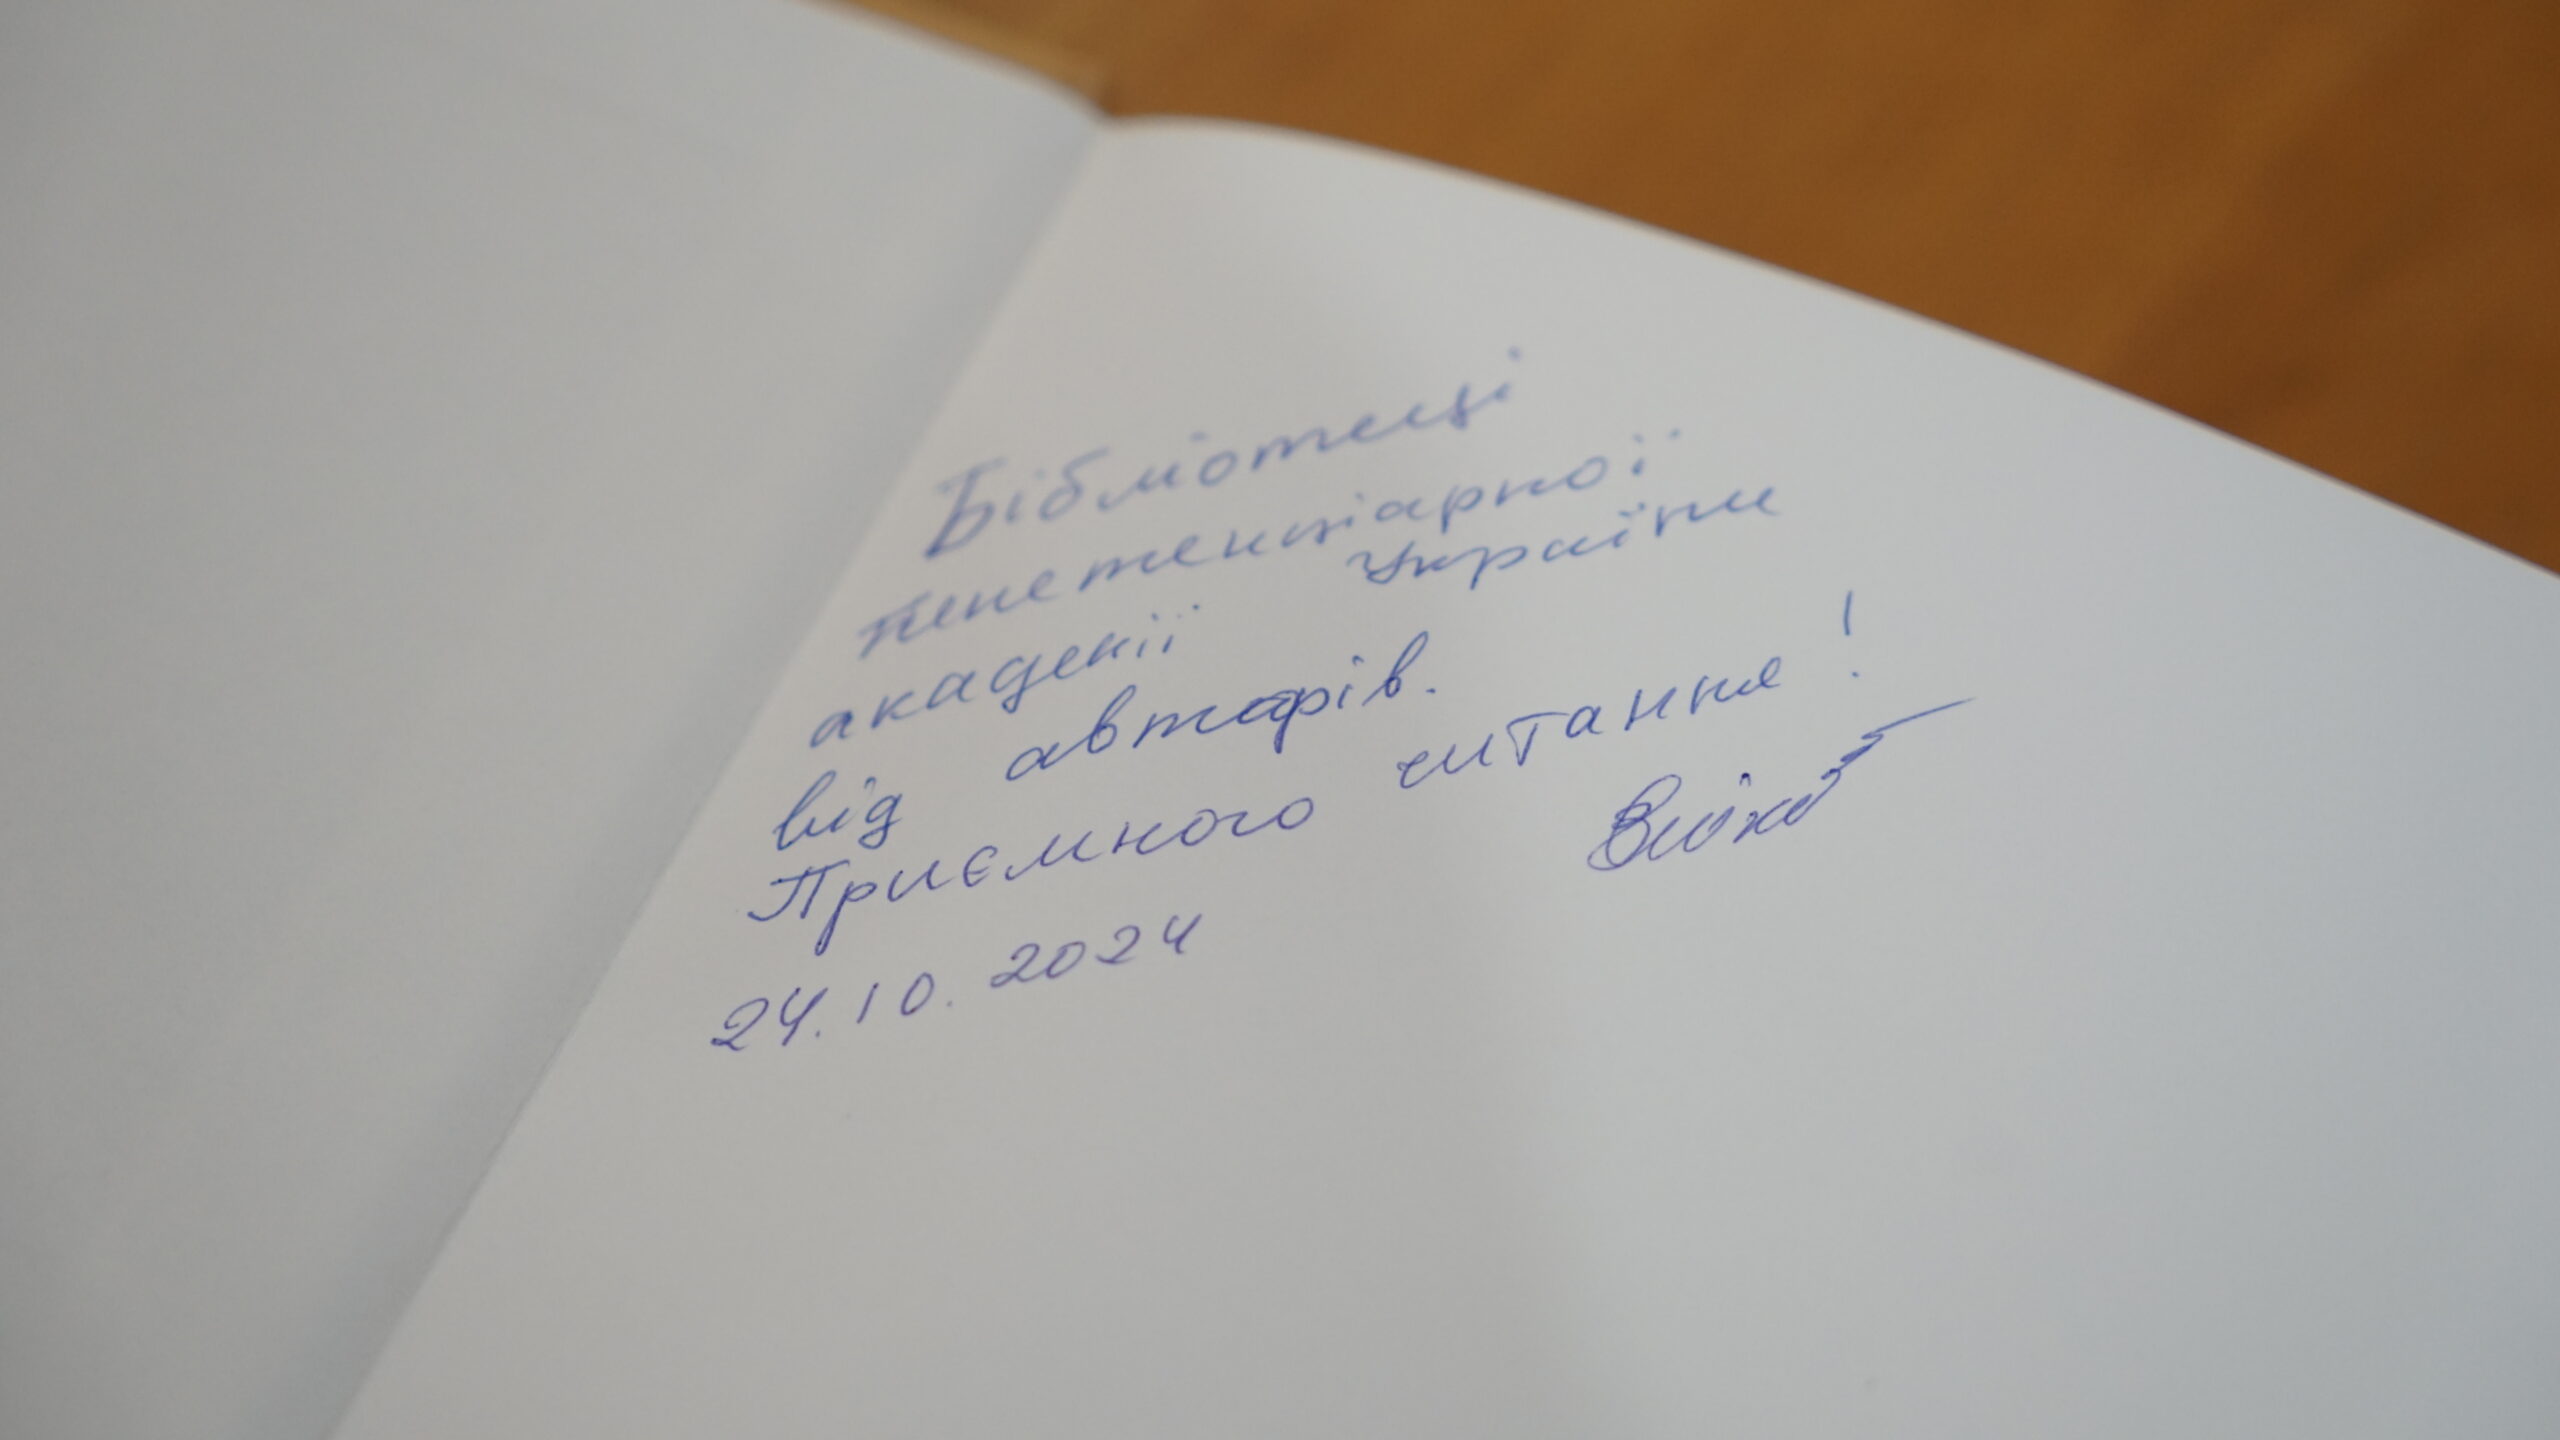 Бібліотеці
пенетенціарної
академії України
від авторів.
Приємного читання!
24.10.2024